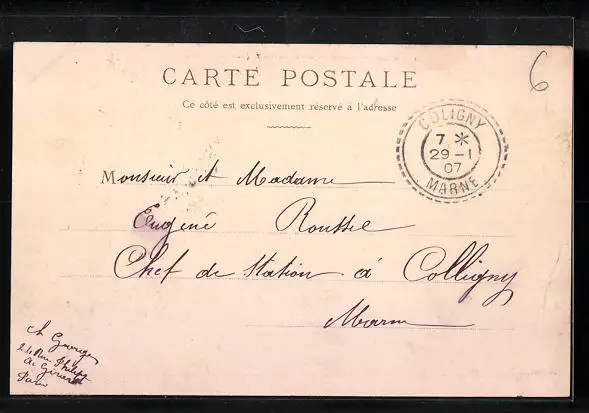 CARTE POSTALE
Ce côté est exclusivement réservé à l'adresse
6
COLIGNY
7 *
29 - 1
07
MARNE
Monsieur et Madame
Eugéne Roussel
Chef de Station à Colligny
Marne
24 Rue Philippe
de Girard
Paris